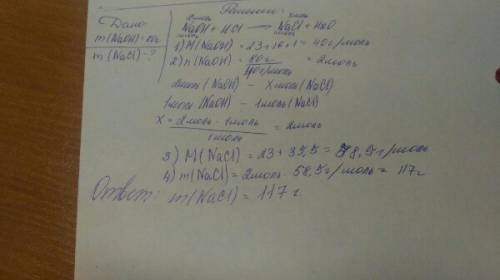 Решение:
Дано
m(NaOH) = 80г
m(NaCl) - ?
2моль хмоль
NaOH + HCl → NaCl + H2O
1моль 1моль
1) M(NaOH) = 23+16+1 = 40г/моль
2) n(NaOH) = 80г / 40г/моль = 2моль
2моль (NaOH) - Х моль (NaCl)
1моль (NaOH) - 1моль (NaCl)
X = 2моль · 1моль / 1моль = 2моль
3) M(NaCl) = 23 + 35,5 = 58,5г/моль
4) m(NaCl) = 2моль · 58,5г/моль = 117г
Ответ: m(NaCl) = 117г.